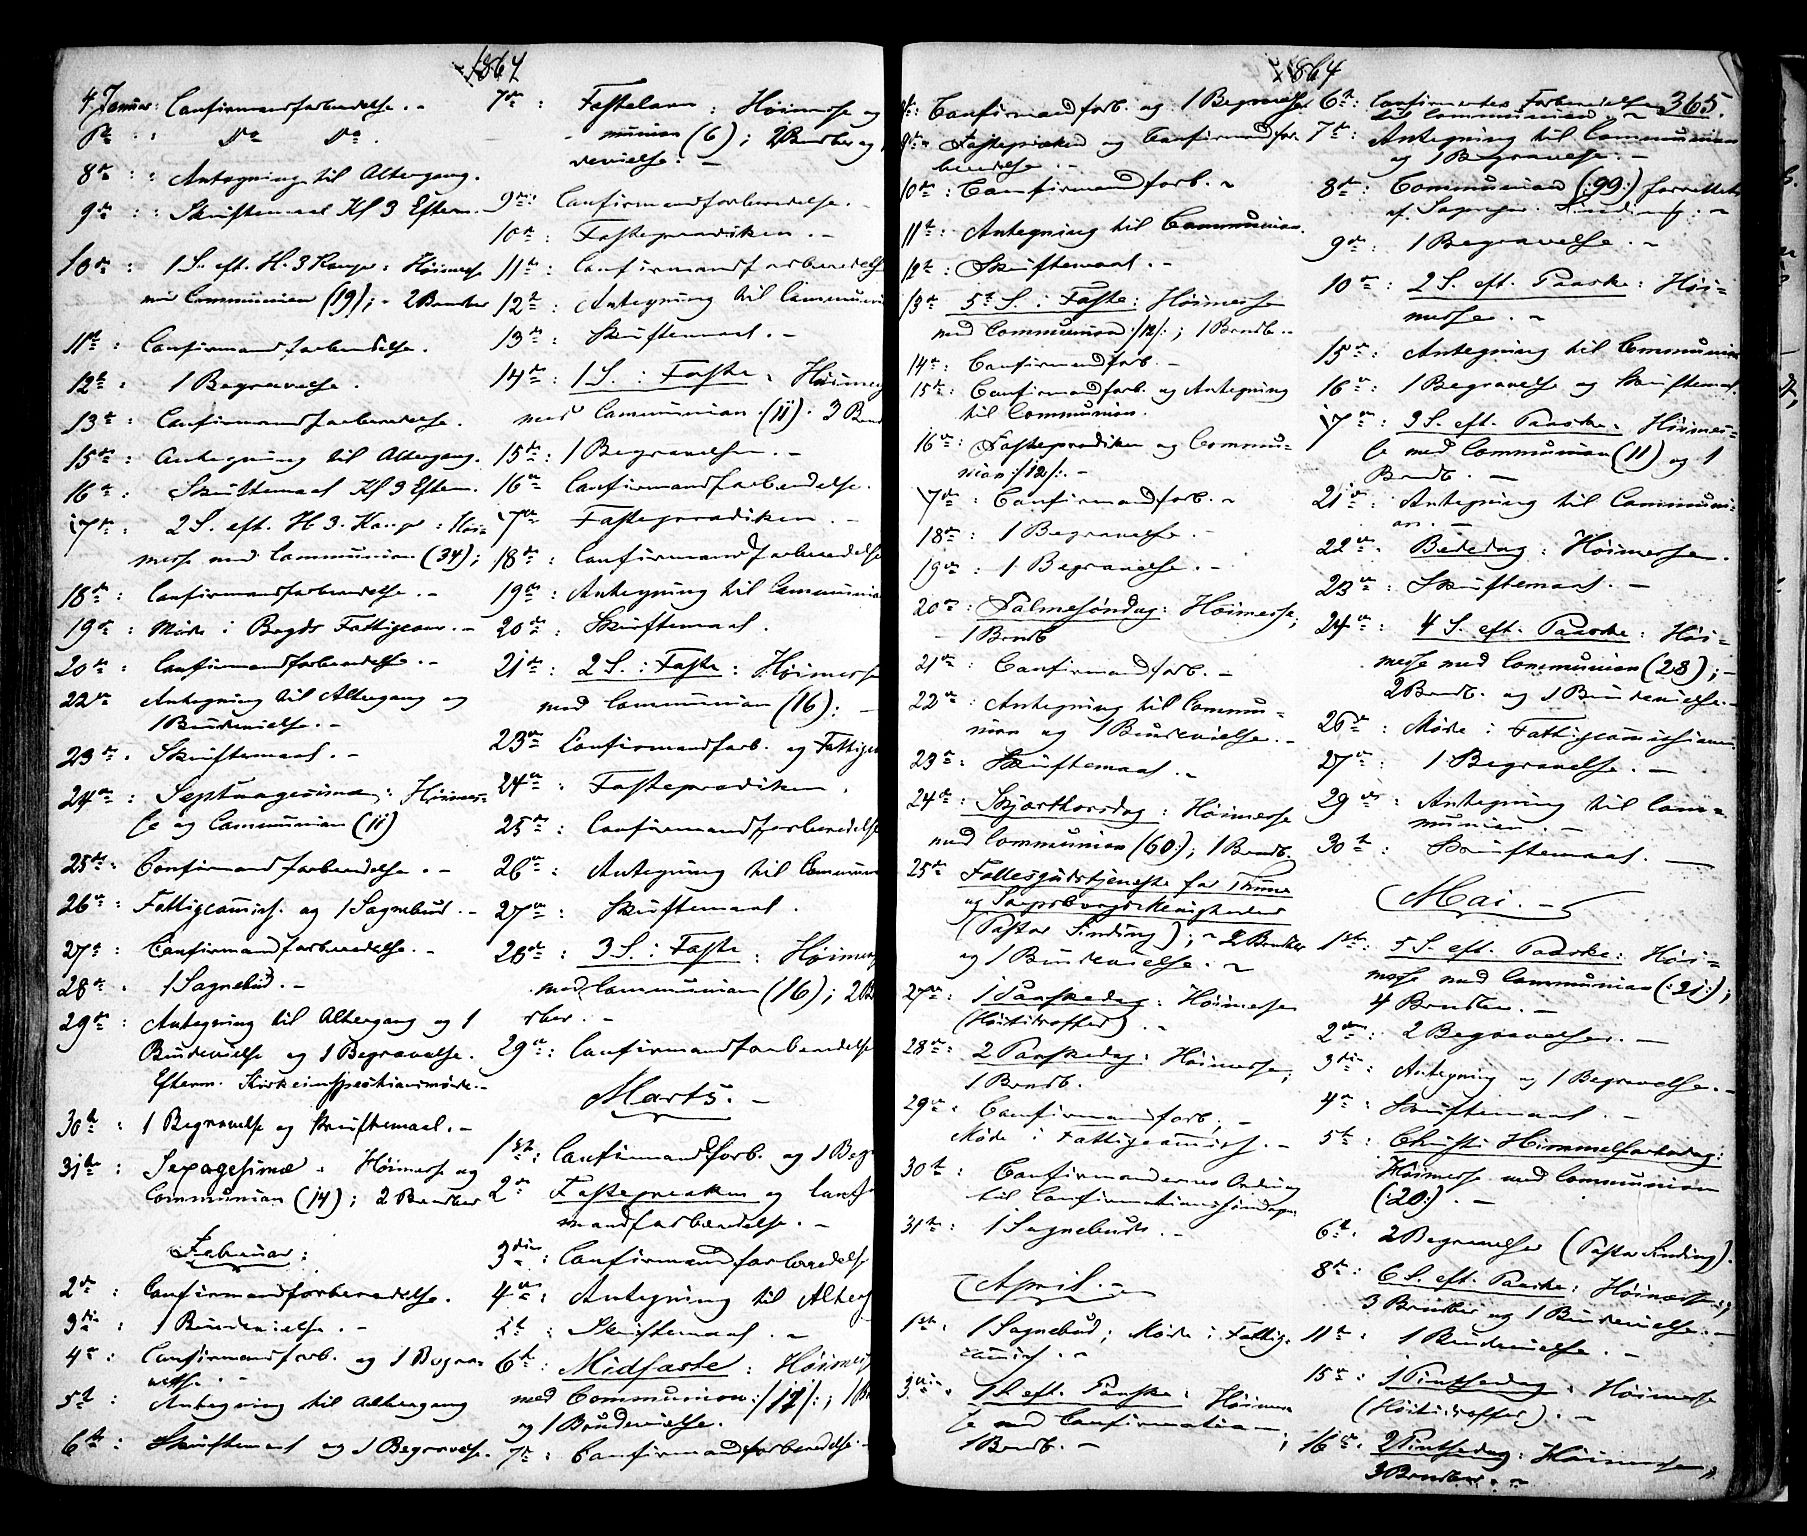 1864
4 Januar: Confirmandforberedelse. -
8de : : Antegning til Altergang.
9de : : Skriftemaal Kl 3 Efterm. -
10de : 1 S. eft. H. 3 Konger: Høimesse
med Communion (19); - 2 Brudber
11te : Confirmandforberedelse.
12te : 1 Begravelse.
13de : Confirmandforberedelse.
15de : Antegning til Altergang.
16de : Skriftemaal Kl 3 Efterm.
17de : 2 S. eft. H. 3. Konger : Høi-
messe med Communion (34);
18de : Confirmandforberedelse. -
19de : Møde i Fattigcom. -
20de : Confirmandforberedelse. -
22de Antegning til Altergang og
1 Brudevielse. -
23de . Skriftemaal. -
24de : Septuagesima: Høimes-
se og Communion (11)
25de : Confirmandforberedelse. -
26de : Fattigcommiss. og 1 Sognebud. -
27de : Confirmandforberedelse. -
28de . 1 Sognebud. -
29de : Antegning til Altergang og 1
Brudevielse og 1 Begravelse.
Efterm.
30te : 1 Begravelse og Skriftemaal. -
31te : Sexagesima. Høimesse og
Communion (14); 2 Brudber
Februar:
2den : Confirmandforberedelse.
3die : 1 Brudevielse. -
4de : Confirmandforb. og 1 Begra-
velse. -
5te : Antegning til Altergang
6te : Skriftemaal og 1 Begravelse.
7de : Fastelavn : Høimesse og
munion (6); 2 Brudber og
devielse. -
9de : Confirmandforberedelse. -
10de : Fasteprædiken. -
11te : Confirmandforberedelse
12te : Antegning til Communi
13de : Skriftemaal. -
14de : 1 S. i Faste : Høimes
med Communion (11): 3 Brud
15de : 1 Begravelse. -
16de Confirmandforberedelse.
17de Fasteprædiken. -
18de : Confirmandforberedelse
19de : Antegning til Communio
20de : Skriftemaal.
21de : 2 S. i Faste : Høimesse
med Communion (16): -
23de Confirmandforb. og Fattig
24de : Fasteprædiken.
25de : Confirmandforberedelse
26de : Antegning til Commun
27de : Skriftemaal.
28de : 3 S. i Faste : Høimes
med Communion (16); 2 B
dber. -
29de : Confirmandforberedelse
Marts. -
1ste : Confirmandforb. og 1 Beg
2den Fasteprædiken og Confir
mandforberedelse. -
3die : Confirmandforberedelse
4de : Antegning til Alterg
5te : Skriftemaal. -
6te : Midfaste : Høimes
med Communion :/17/:, 1 Br
og 1 Brudevielse.
7de : Confirmandforberedelse. -
1864
365.
Confirmandforb. og 1 Begravelse
9de Fasteprædiken og Confirmandfor
beredelse. -
10de : Confirmandforb. -
11te : Antegning til Communion.
12te : Skriftemaal. -
13de 5te S. i Faste: Høimesse
med Communion :/12/:; 1 Brudb. -
14de : Confirmandforb. -
15de : Confirmandforb. og Antegning
til Communion.
16de : Fasteprædiken og Commu-
nion :/12/:. -
17de : Confirmandforb. -
18de : 1 Begravelse. -
19de : 1 Begravelse. -
20de : Palmesøndag: Høimesse;
- 1 Brudb
21de : Confirmandforb. -
22de : Antegning til Commu-
nion og 1 Brudevielse. -
23de : Skriftemaal. -
24de : Skjærthorsdag: Høimesse
med Communion (60:); 1 Brudb.
25de Fællesgudstjeneste for Tune
og Sarpsborgs Menigheder
(Pastor Sinding); - 2 Brudber
og 1 Brudevielse. -
27de : 1 Paaskedag: Høimesse
(Høitidsoffer). -
28de : 2 Paaskedag: Høimesse;
1 Brudb.
29de : Confirmandforb; -
Møde i Fattigcommiss. -
30te : Confirmandernes Ordning
til Confirmationshandlingen
31te : 1 Sognebud. -
April. -
1ste : 1 Sognebud; Møde i Fattig-
commiss. -
3die . 1 S. eft. Paaske: Høimes
se med Confirmation -;
1 Brudb. -
6te : Confirmerter Forberedelse
til Communion -
7de : Antegning til Communion
og 1 Begravelse. -
8de : Communion (:99:) forrettet
af Sogneper. Sinding: -
9de : 1 Begravelse. -
10de : 2 S. eft. Paaske: Høi-
messe. -
15de : Antegning til Communion
16de : 1 Begravelse og Skriftemaal.
17de : 3 S. eft. Paaske: Høimes-
se med Communion (11) og 1
Brudb. -
21de : Antegning til Communi-
on. -
22de . Bededag: Høimesse.
23de : Skriftemaal. -
24de : 4 S. eft. Paaske: Høi-
messe med Communion (28); -
2 Brudb. og 1 Brudevielse. -
26de : Møde i Fattigcommissionen
27de : 1 Begravelse. -
29de : Antegning til Com-
munion. -
30te : Skriftemaal. -
Mai. -
1ste : 5 S. eft. Paaske: Høi-
messe med Communion (:21:);
4 Brudber. -
2den : 2 Begravelser. -
3die : Antegning og 1 Begravelse. -
4de : Skriftemaal. -
5te : Christi Himmelfartsdag:
Høimesse med Communion
(:20:). -
6te : 2 Begravelser (Pastor Sinding).
8de : 6 S. eft. Paaske: Høimesse;
3 Brudber og 1 Brudevielse. -
11te : 1 Brudevielse. -
15de : 1 Pintsedag: Høimesse
(Høitidsoffer). -
16de : 2 Pintsedag: Høimesse,
3 Brudber. -